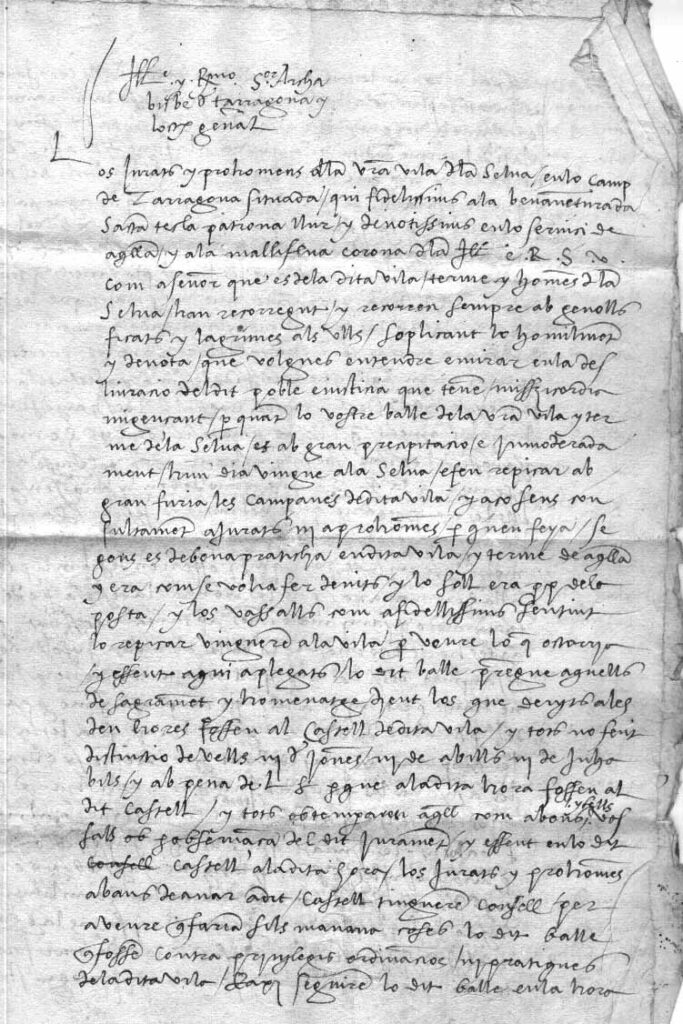 Ill.e y Rmo Sor Archa
bisbe d tarragona y
loct general
Los Jurats y prohomens dla vra vila dla Selva / en lo Camp
de Tarragona situada / qui fidelissims a la benaventurada
Sacta tecla patrona llur / y devotissims en lo servici de
aqlla / y a la mallifflua corona dla Ill e. R. S v.
com a senor que es dela dita vila / terme y homes dla
Selva / han recorregut / y recorren sempre ab genolls
ficats y lagrimes als ulls / soplicant lo homilmet
y devota / que volgues entendre e mirar en la des
liuracio del dit poble e iusticia que tene / missericordia
migencant / p quat lo vostre balle dela vra vila y ter
me dela Selva / es ab gran precipitacio / e inmoderada
ment / hun dia vingue ala Selva / e feu repicar ab
gran furia / les Campanes de dita vila / y aço sens con
sultamet a Jurats ni a prohomes p quen feya / se
gons es de bona praticha en dita vila / y terme de aqlla
y era com se volia fer de nits y lo soll era pp dela
posta / y los vassalls com a fidellissims sentint
lo repicar vingueren a la vila p veure lo q
y essent aqui aplegats / lo dit balle prengue aquells
de sagramet y homenatge dient los que devyts a les
deu hores fossen al Castell de dita vila / y tots no fent
distinctio de vells ni d Jones / ni de abills ni de Inha
bils / y ab pena de L ll p que a la dita hora fossen al
dit Castell / y tots obtemperaren aqll com a bons y fells vas
salls ob hobservaca del dit Jurament / y essent en lo dit
Castell a la dita hora / los Jurats y prohomes
abans de anar a dit / Castell tingueren Consell / per
a veure q farian sils manava coses lo dit balle
q fosse contra privilegis ordinacios / ni pratiques
dela dita vila / seguire lo dit balle en la hora